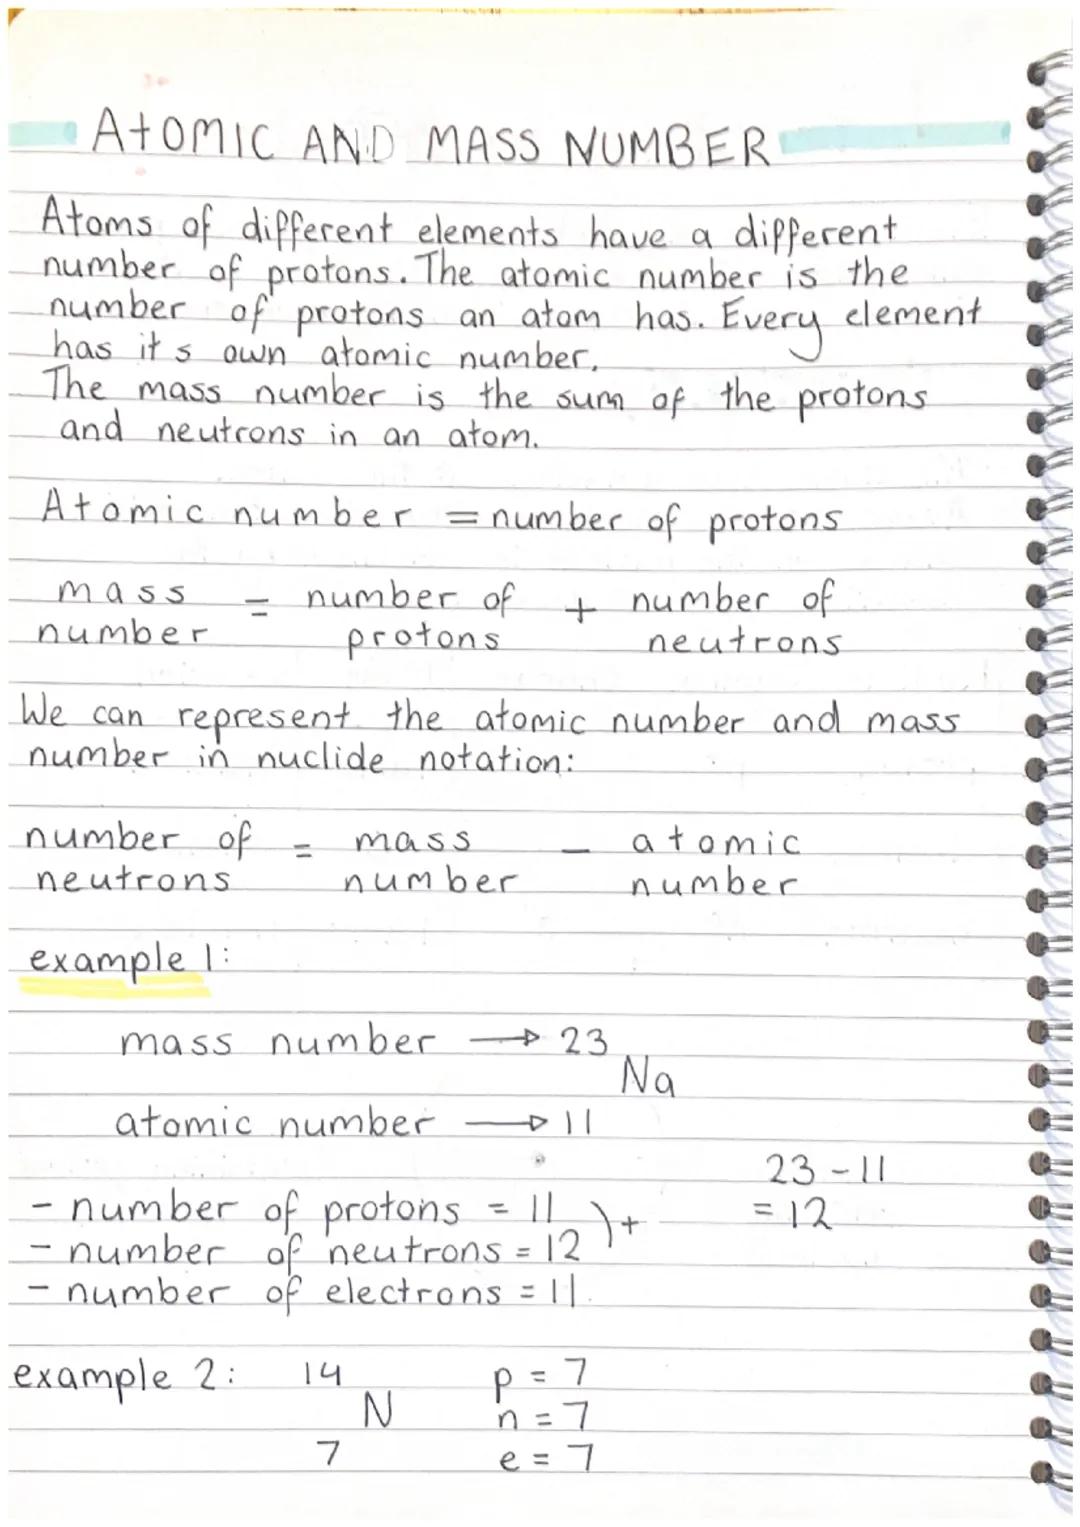 ATOMIC AND MASS NUMBER
Atoms of different elements have a different
number of protons. The atomic number is the
number of protons an atom has. Every element
has it s own atomic number.
The mass number is the sum of the protons
and neutrons in an atom.
Atomic number = number of protons
mass = number of + number of
number protons neutrons
We can represent the atomic number and mass
number in nuclide notation:
number of = mass - atomic
neutrons number number
example 1:
mass number → 23
Na
atomic number → 11
23 - 11
- number of protons = 11 ) + = 12
- number of neutrons = 12
- number of electrons = 11.
example 2: 14 p = 7
N n = 7
7 e = 7